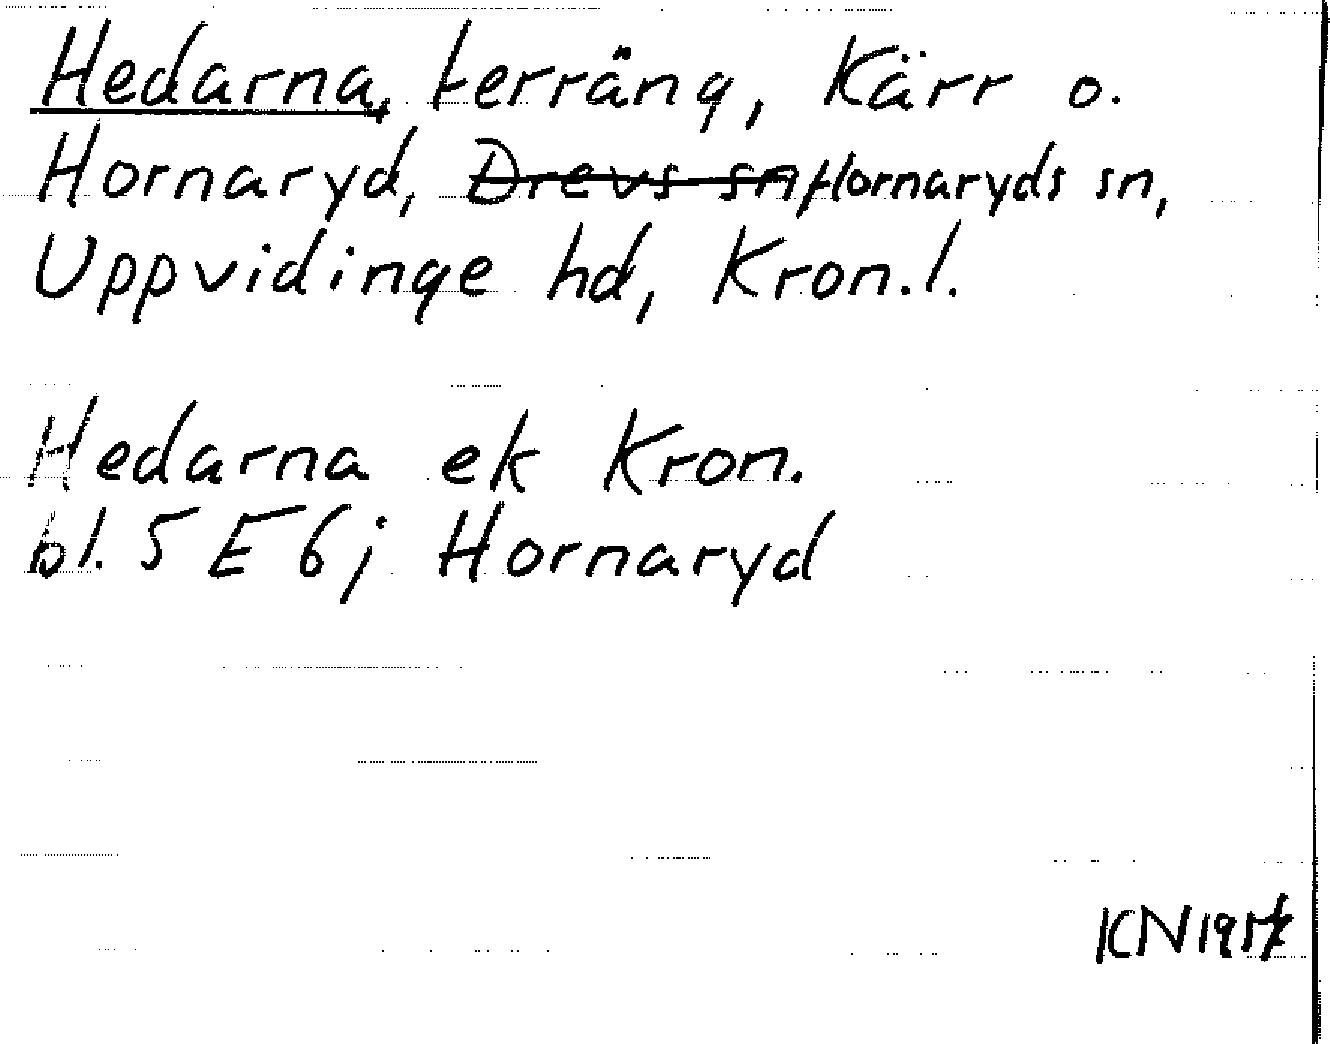 Hedarna, terräng, Kärr o.
Hornaryd, Drevs sn Hornaryds sn,
Uppvidinge hd, Kron.l.
Hedarna ek Kron.
bl. 5 E 6 j Hornaryd
KN